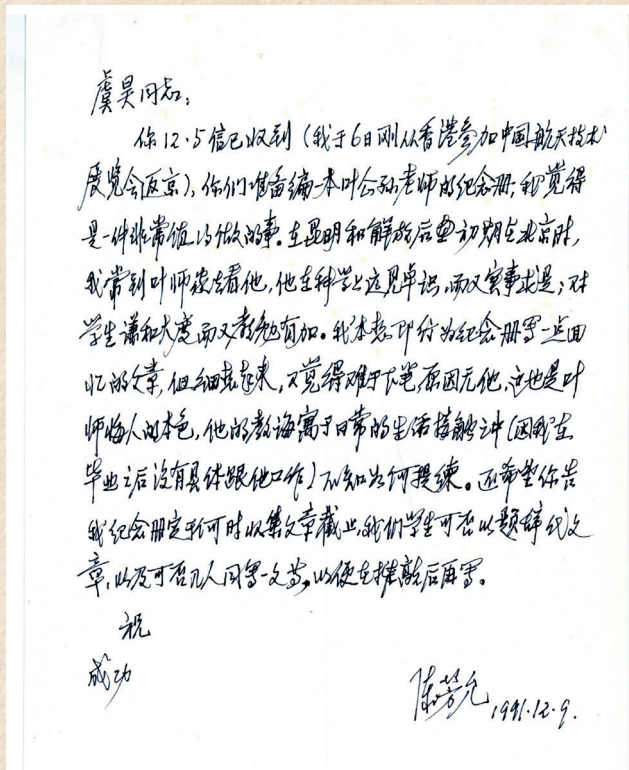 虞昊同志：
你12.5信已收到（我于6日刚从香港参加中国航天技术
展览会返京），你们准备编一本叶企孙老师的纪念册，我觉得
是一件非常值得做的事。在昆明和解放后初期在北京时，
我常到叶师该去看他，他在科学上远见卓识，而又实事求是；对
学生谦和大度而又教勉有加。我本想即行为纪念册写一点回
忆的文章，但细想起来，又觉得难于下笔，原因无他，这也是叶
师诲人的本色，他的教诲寓于日常的生活接触之中（因我在
毕业之后没有具体跟他工作）不知如何提练。还希望你告
我纪念册定于何时收集文章截止，我们学生可否以题辞代文
章，以及可否几人同写一文等，以便在推敲后再写。
祝
成功
陈芳允 1991.12.9.